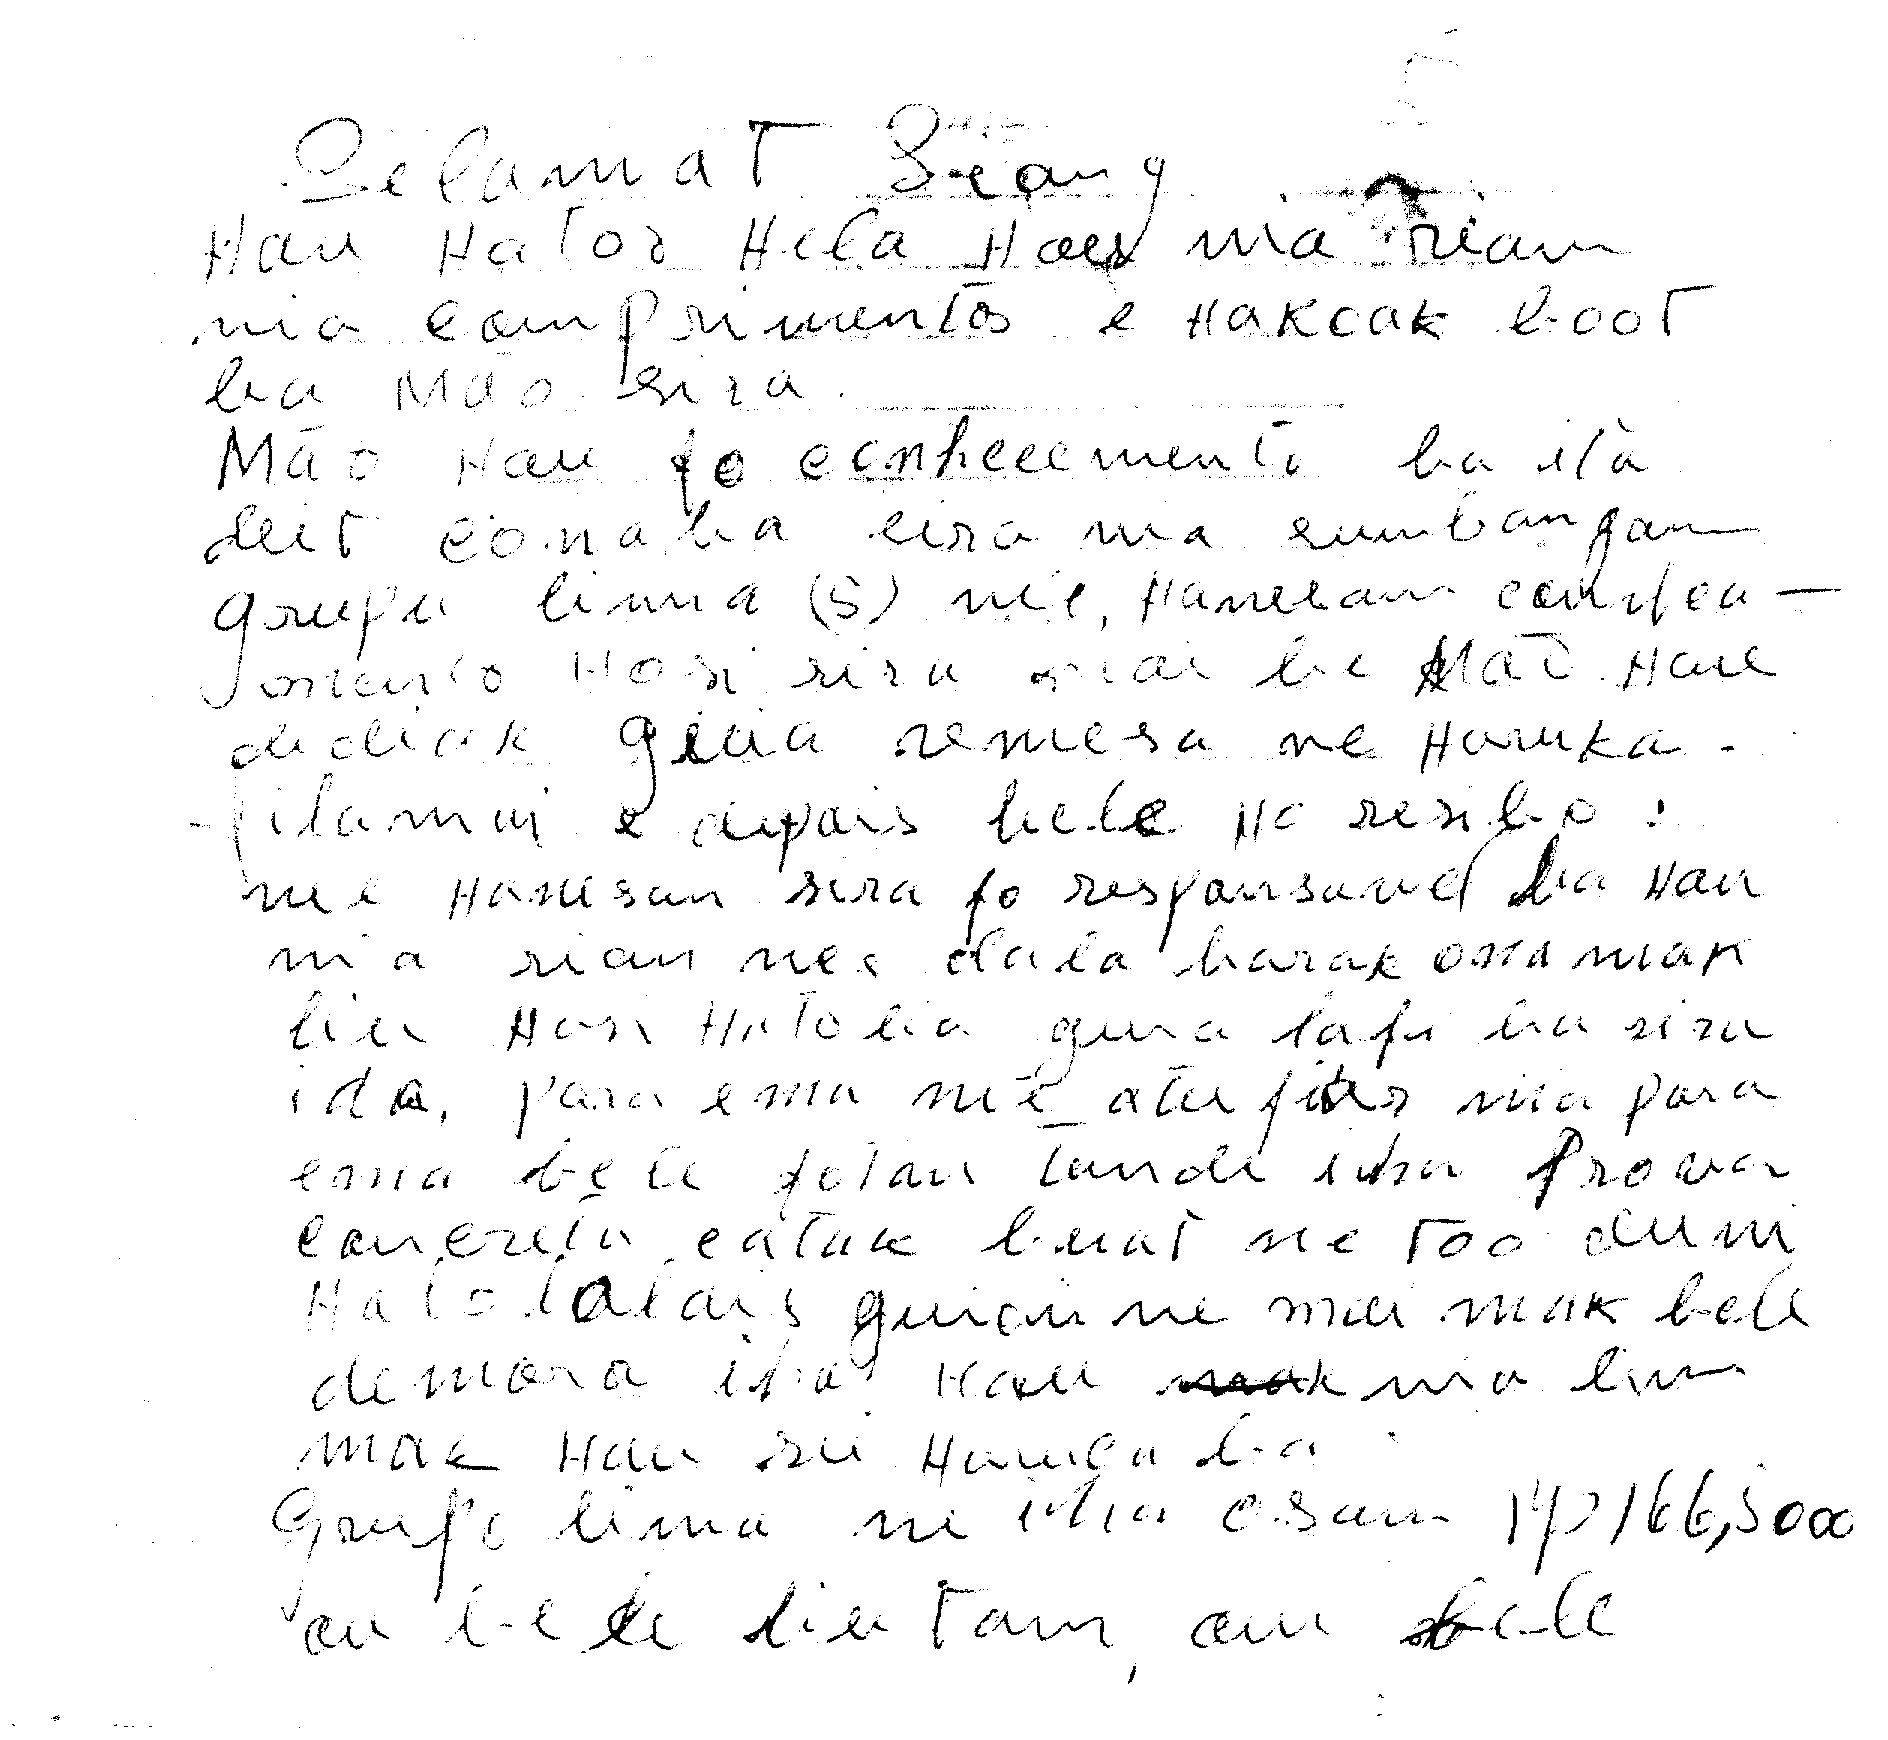 Selamat Seang
Hau Hator Hela Haes nia rian
nia comprimentos e Hakcak boot
ba Mão sira
Mão Hau fo conhecemento ba ita
deit cona ba sira nia sumbangan
grupu lima (5) nie, Hanesan
Hosi sira mai be Mão Hare
didiak guia remesa ne Haruka
filamai e depois bele Ho resibo :
ne e Hanesan sira fo responsavel ba Hau
nia rian nee dala barak ona mak
liu Hosi Hatolia guia lafi ba sira
ida, para ema nie atu fiar nia para
ema bele fotan tande iha Prova
concreta catak buat ne too duni
guian ne mai mak bele
demora iha Hau nia lim
mak Hau sei Haruca ba
Grupo lima ne iha osan 166,5000
ou bele liu tan, ou bele